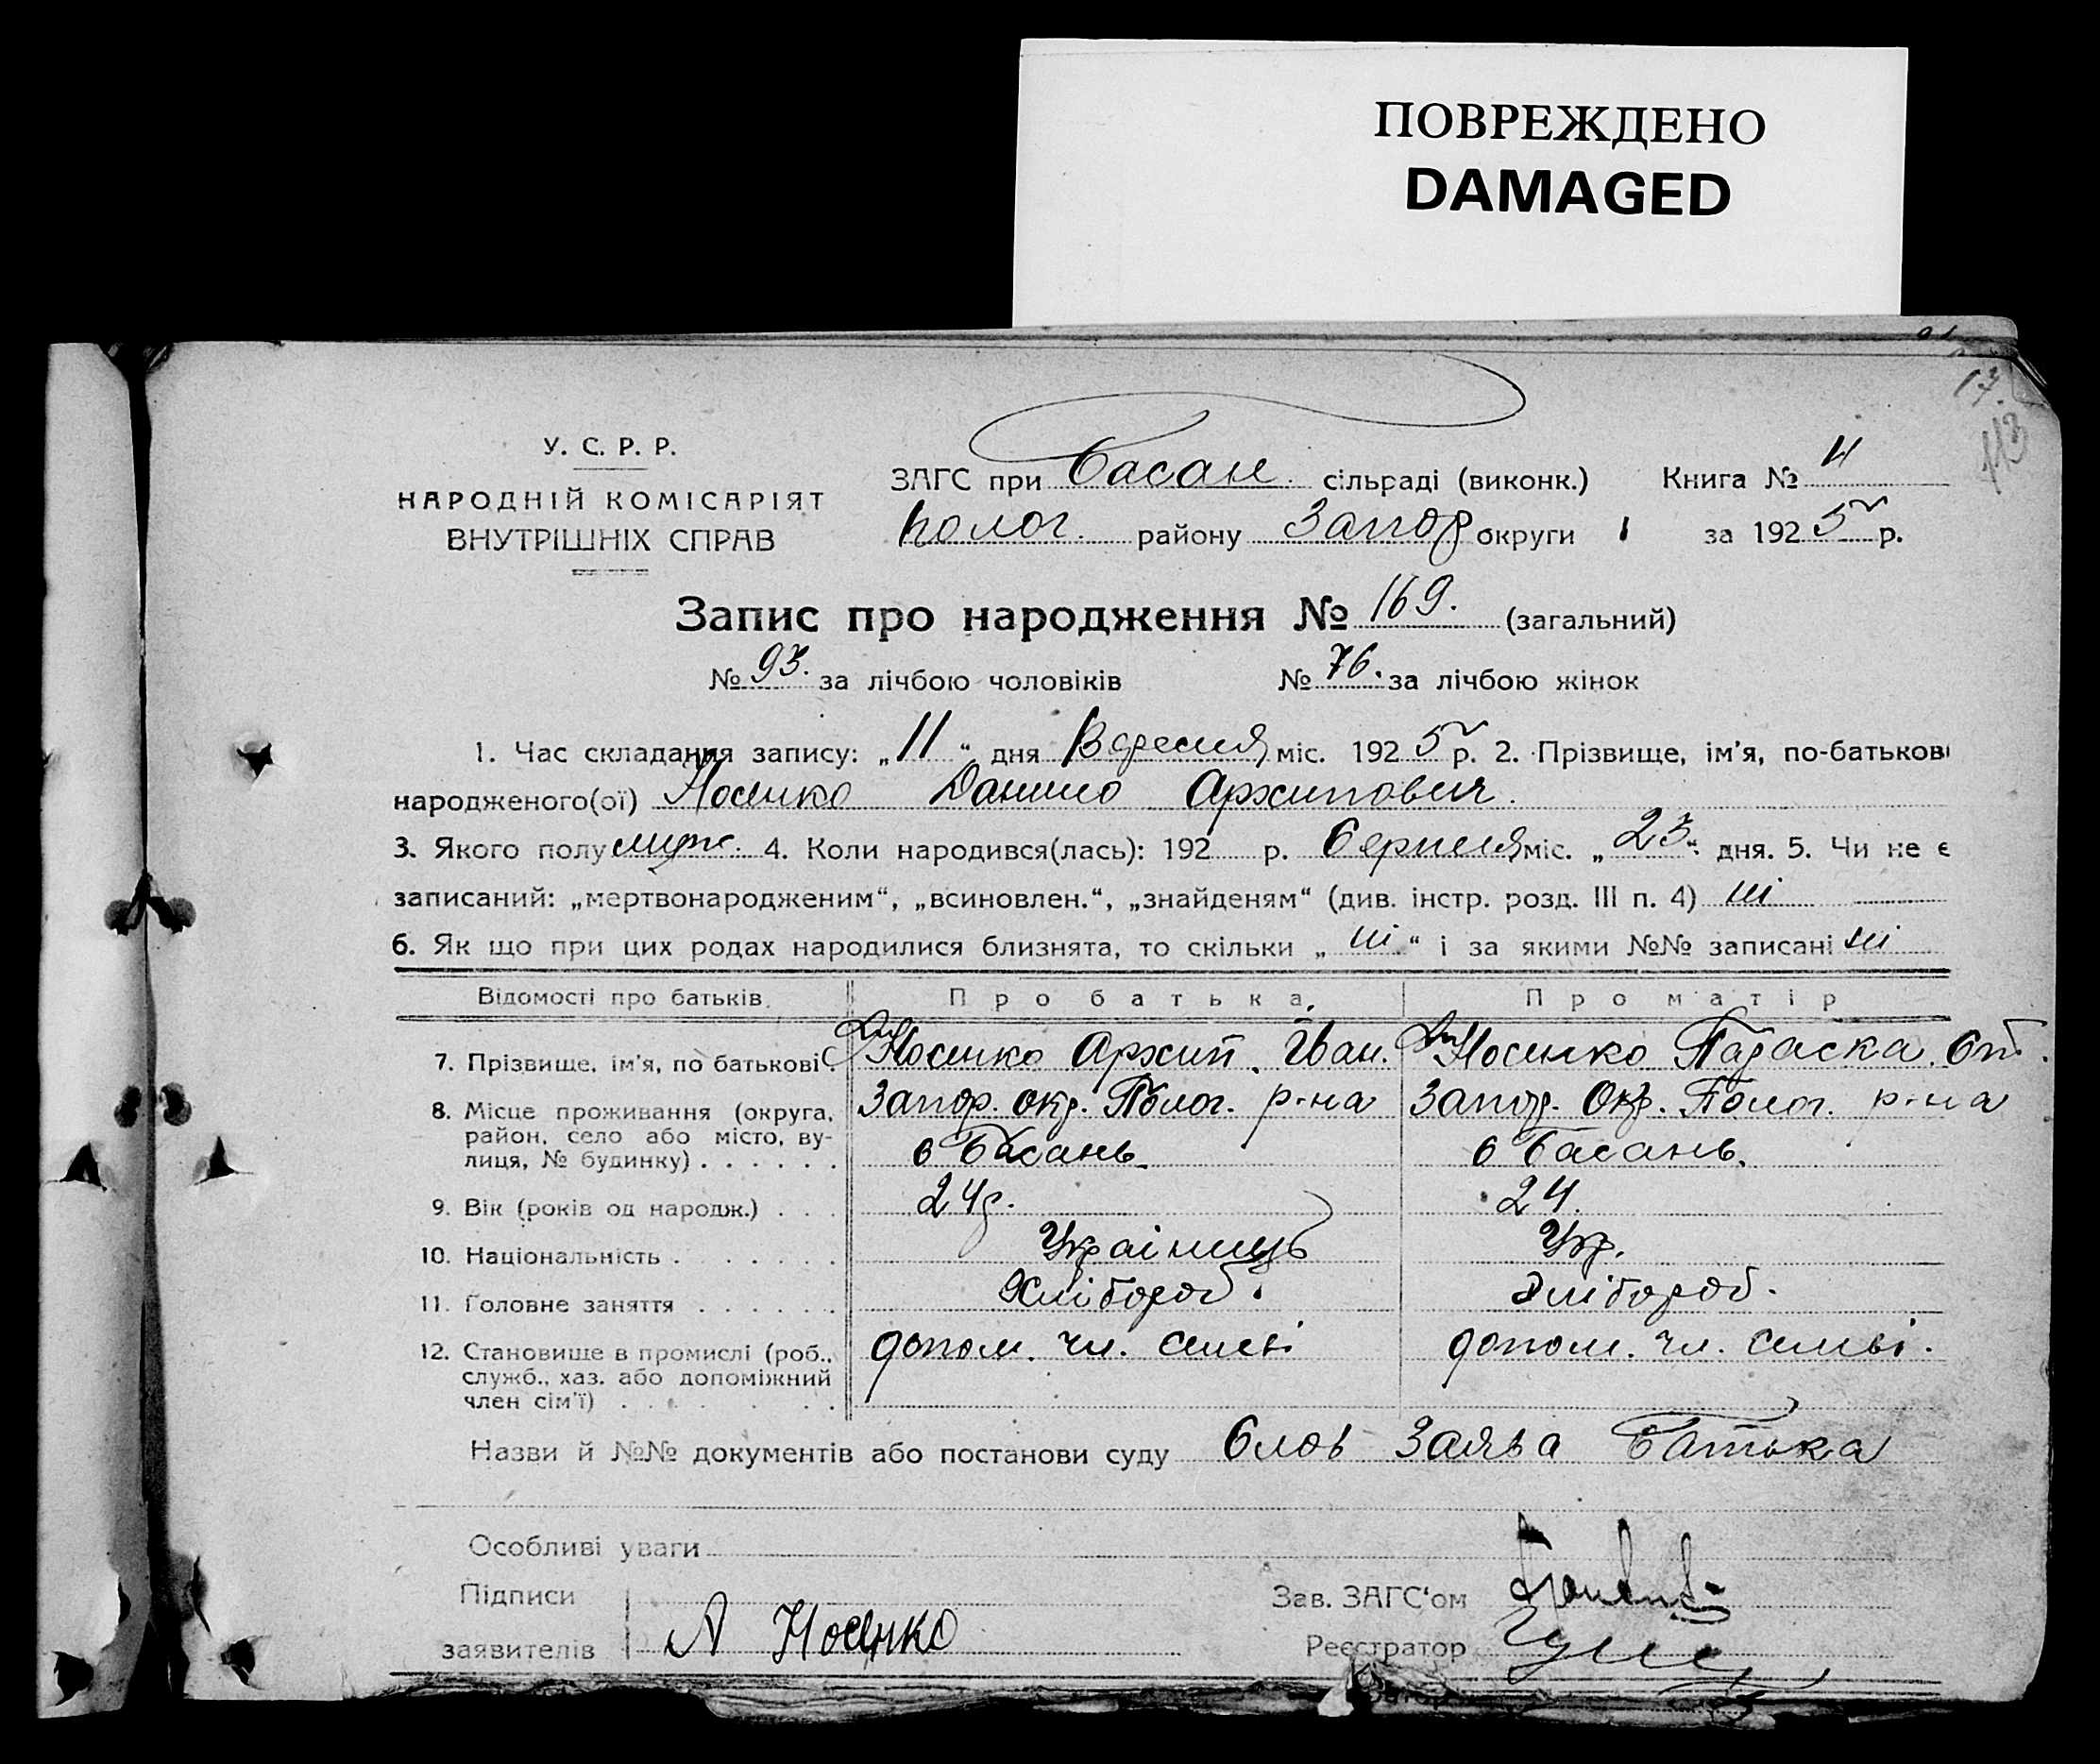 ПОВРЕЖДЕНО
DAMAGED
113
У. С. Р. Р.
НАРОДНІЙ КОМІСАРІЯТ
ВНУТРІШНІХ СПРАВ
ЗАГС при Басан. сільраді (виконк.) Книга №
полог. району Запор округи за 1925 р.
Запис про народження № 169. (загальний)
№ 93. за лічбою чоловіків № 76. за лічбою жінок
1. Час складання запису: „11“ дня Вересня міс. 1925 р. 2. Прізвище, ім'я, по-батькові
народженого(ої) Носенко Данило Архипович.
3. Якого полу муж. 4. Коли народився(лась): 192 р. Серпня міс. „23“ дня. 5. Чи не є
записаний: „мертвонародженим“, „всиновлен.“, „знайденям“ (див. інстр. розд. III п. 4) ні
6. Як що при цих родах народилися близнята, то скільки „ні“ і за якими №№ записані ні
Відомості про батьків. Про батька. Про матір
7. Прізвище, ім'я, по батькові. Носенко Архип. Іван. Носенко Параска. Ст.
8. Місце проживання (округа, Запор. окр. Полог. р-на Запор. Окр. Полог. р-на
район, село або місто, ву- с Басань. с Басань.
лиця, № будинку) . . . . . .
9. Вік (років од народж.) . . . 24р. 24.
10. Національність . . . . . . . Українець Укр.
11. Головне заняття . . . . . . Хлібороб. Хлібороб.
12. Становище в промислі (роб., допом. чл. семьі допом. чл. семьі.
служб., хаз. або допоміжний
член сім'ї) . . . . . . .
Назви й №№ документів або постанови суду Слов Заява Батька
Особливі уваги
Підписи Зав. ЗАГС'ом
заявителів А Носенко Реєстратор